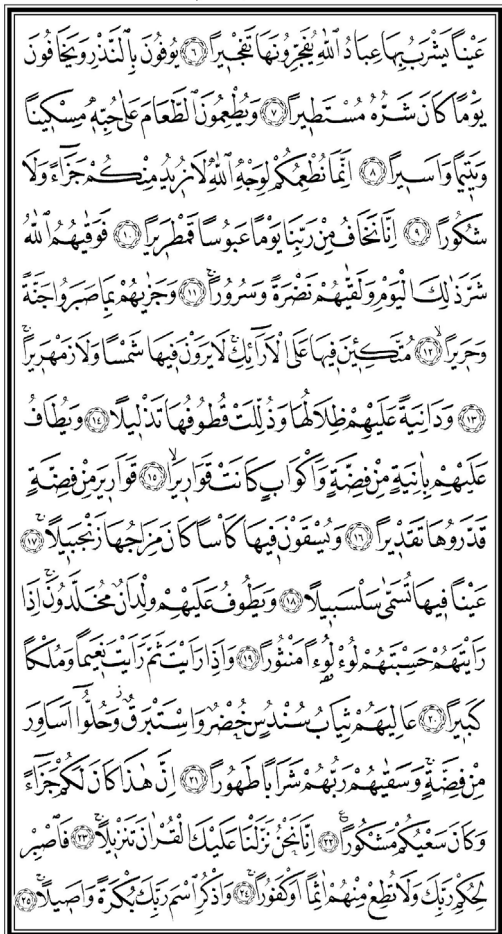 عَيْنًا يَشْرَبُ بِهَا عِبَادُ اللّٰهِ يُفَجِّرُونَهَا تَفْجِيرًا ﴿٦﴾ يُوفُونَ بِالنَّذْرِ وَيَخَافُونَ
يَوْمًا كَانَ شَرُّهُ مُسْتَطِيرًا ﴿٧﴾ وَيُطْعِمُونَ الطَّعَامَ عَلٰى حُبِّهٖ مِسْكِينًا
وَيَتِيمًا وَاَسِيرًا ﴿٨﴾ اِنَّمَا نُطْعِمُكُمْ لِوَجْهِ اللّٰهِ لَا نُرِيدُ مِنْكُمْ جَزَٓاءً وَلَا
شُكُورًا ﴿٩﴾ اِنَّا نَخَافُ مِنْ رَبِّنَا يَوْمًا عَبُوسًا قَمْطَرِيرًا ﴿١٠﴾ فَوَقٰيهُمُ اللّٰهُ
شَرَّ ذٰلِكَ الْيَوْمِ وَلَقّٰيهُمْ نَضْرَةً وَسُرُورًاۚ ﴿١١﴾ وَجَزٰيهُمْ بِمَا صَبَرُوا جَنَّةً
وَحَرِيرًاۙ ﴿١٢﴾ مُتَّكِـِٔينَ فِيهَا عَلَى الْاَرَٓائِكِۚ لَا يَرَوْنَ فِيهَا شَمْسًا وَلَا زَمْهَرِيرًاۚ
﴿١٣﴾ وَدَانِيَةً عَلَيْهِمْ ظِلَالُهَا وَذُلِّلَتْ قُطُوفُهَا تَذْلِيلًا ﴿١٤﴾ وَيُطَافُ
عَلَيْهِمْ بِاٰنِيَةٍ مِنْ فِضَّةٍ وَاَكْوَابٍ كَانَتْ قَوَارِيرَا۬ۙ ﴿١٥﴾ قَوَارِيرَ مِنْ فِضَّةٍ
قَدَّرُوهَا تَقْدِيرًا ﴿١٦﴾ وَيُسْقَوْنَ فِيهَا كَأْسًا كَانَ مِزَاجُهَا زَنْجَبِيلًاۚ ﴿١٧﴾
عَيْنًا فِيهَا تُسَمّٰى سَلْسَبِيلًا ﴿١٨﴾ وَيَطُوفُ عَلَيْهِمْ وِلْدَانٌ مُخَلَّدُونَۚ اِذَا
رَاَيْتَهُمْ حَسِبْتَهُمْ لُؤْلُؤًا مَنْثُورًا ﴿١٩﴾ وَاِذَا رَاَيْتَ ثَمَّ رَاَيْتَ نَعِيمًا وَمُلْكًا
كَبِيرًا ﴿٢٠﴾ عَالِيَهُمْ ثِيَابُ سُنْدُسٍ خُضْرٌ وَاِسْتَبْرَقٌۘ وَحُلُّٓوا اَسَاوِرَ
مِنْ فِضَّةٍۚ وَسَقٰيهُمْ رَبُّهُمْ شَرَابًا طَهُورًا ﴿٢١﴾ اِنَّ هٰذَا كَانَ لَكُمْ جَزَٓاءً
وَكَانَ سَعْيُكُمْ مَشْكُورًا۟ ﴿٢٢﴾ اِنَّا نَحْنُ نَزَّلْنَا عَلَيْكَ الْقُرْاٰنَ تَنْزِيلًاۚ ﴿٢٣﴾ فَاصْبِرْ
لِحُكْمِ رَبِّكَ وَلَا تُطِعْ مِنْهُمْ اٰثِمًا اَوْ كَفُورًاۚ ﴿٢٤﴾ وَاذْكُرِ اسْمَ رَبِّكَ بُكْرَةً وَاَصِيلًاۚ ﴿٢٥﴾